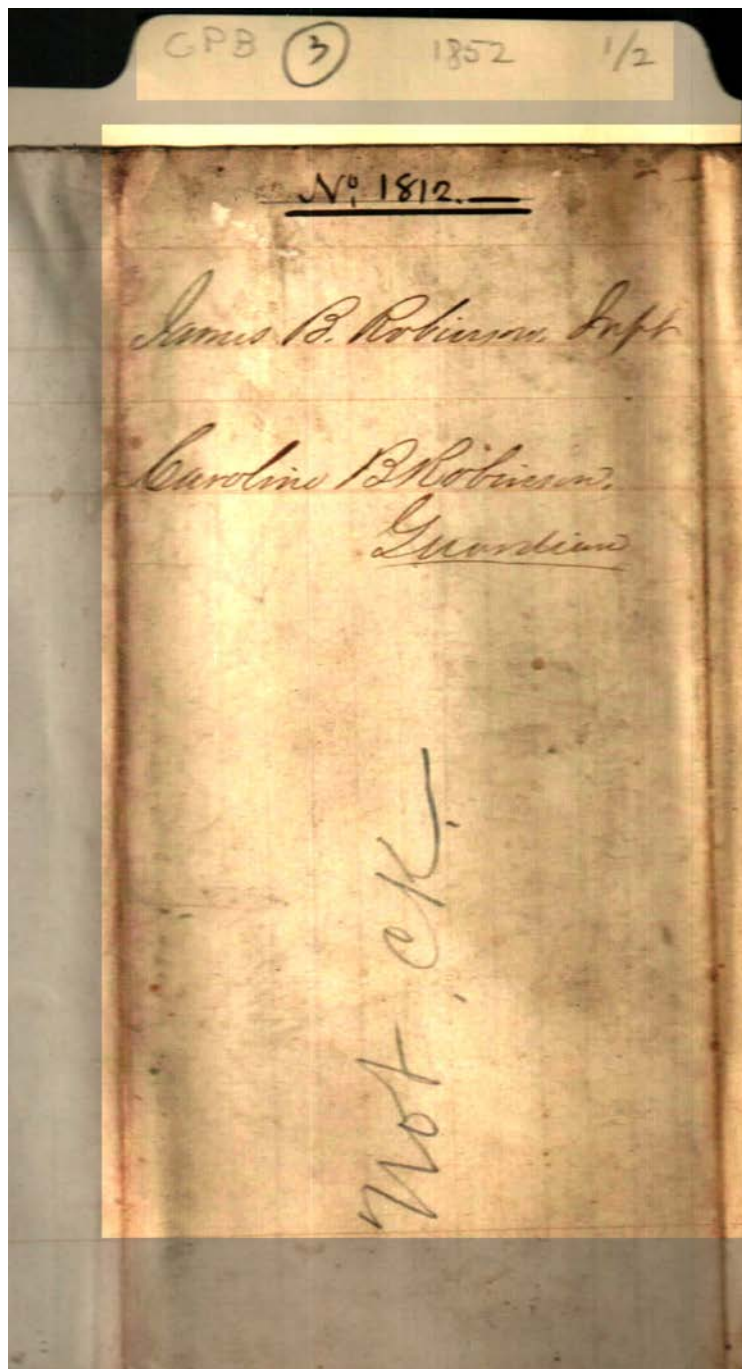 GPB 3 1852 1/2
No. 1812.
James B. Robinson, Inft
Caroline B Robinson,
Guardian
Not, CK.